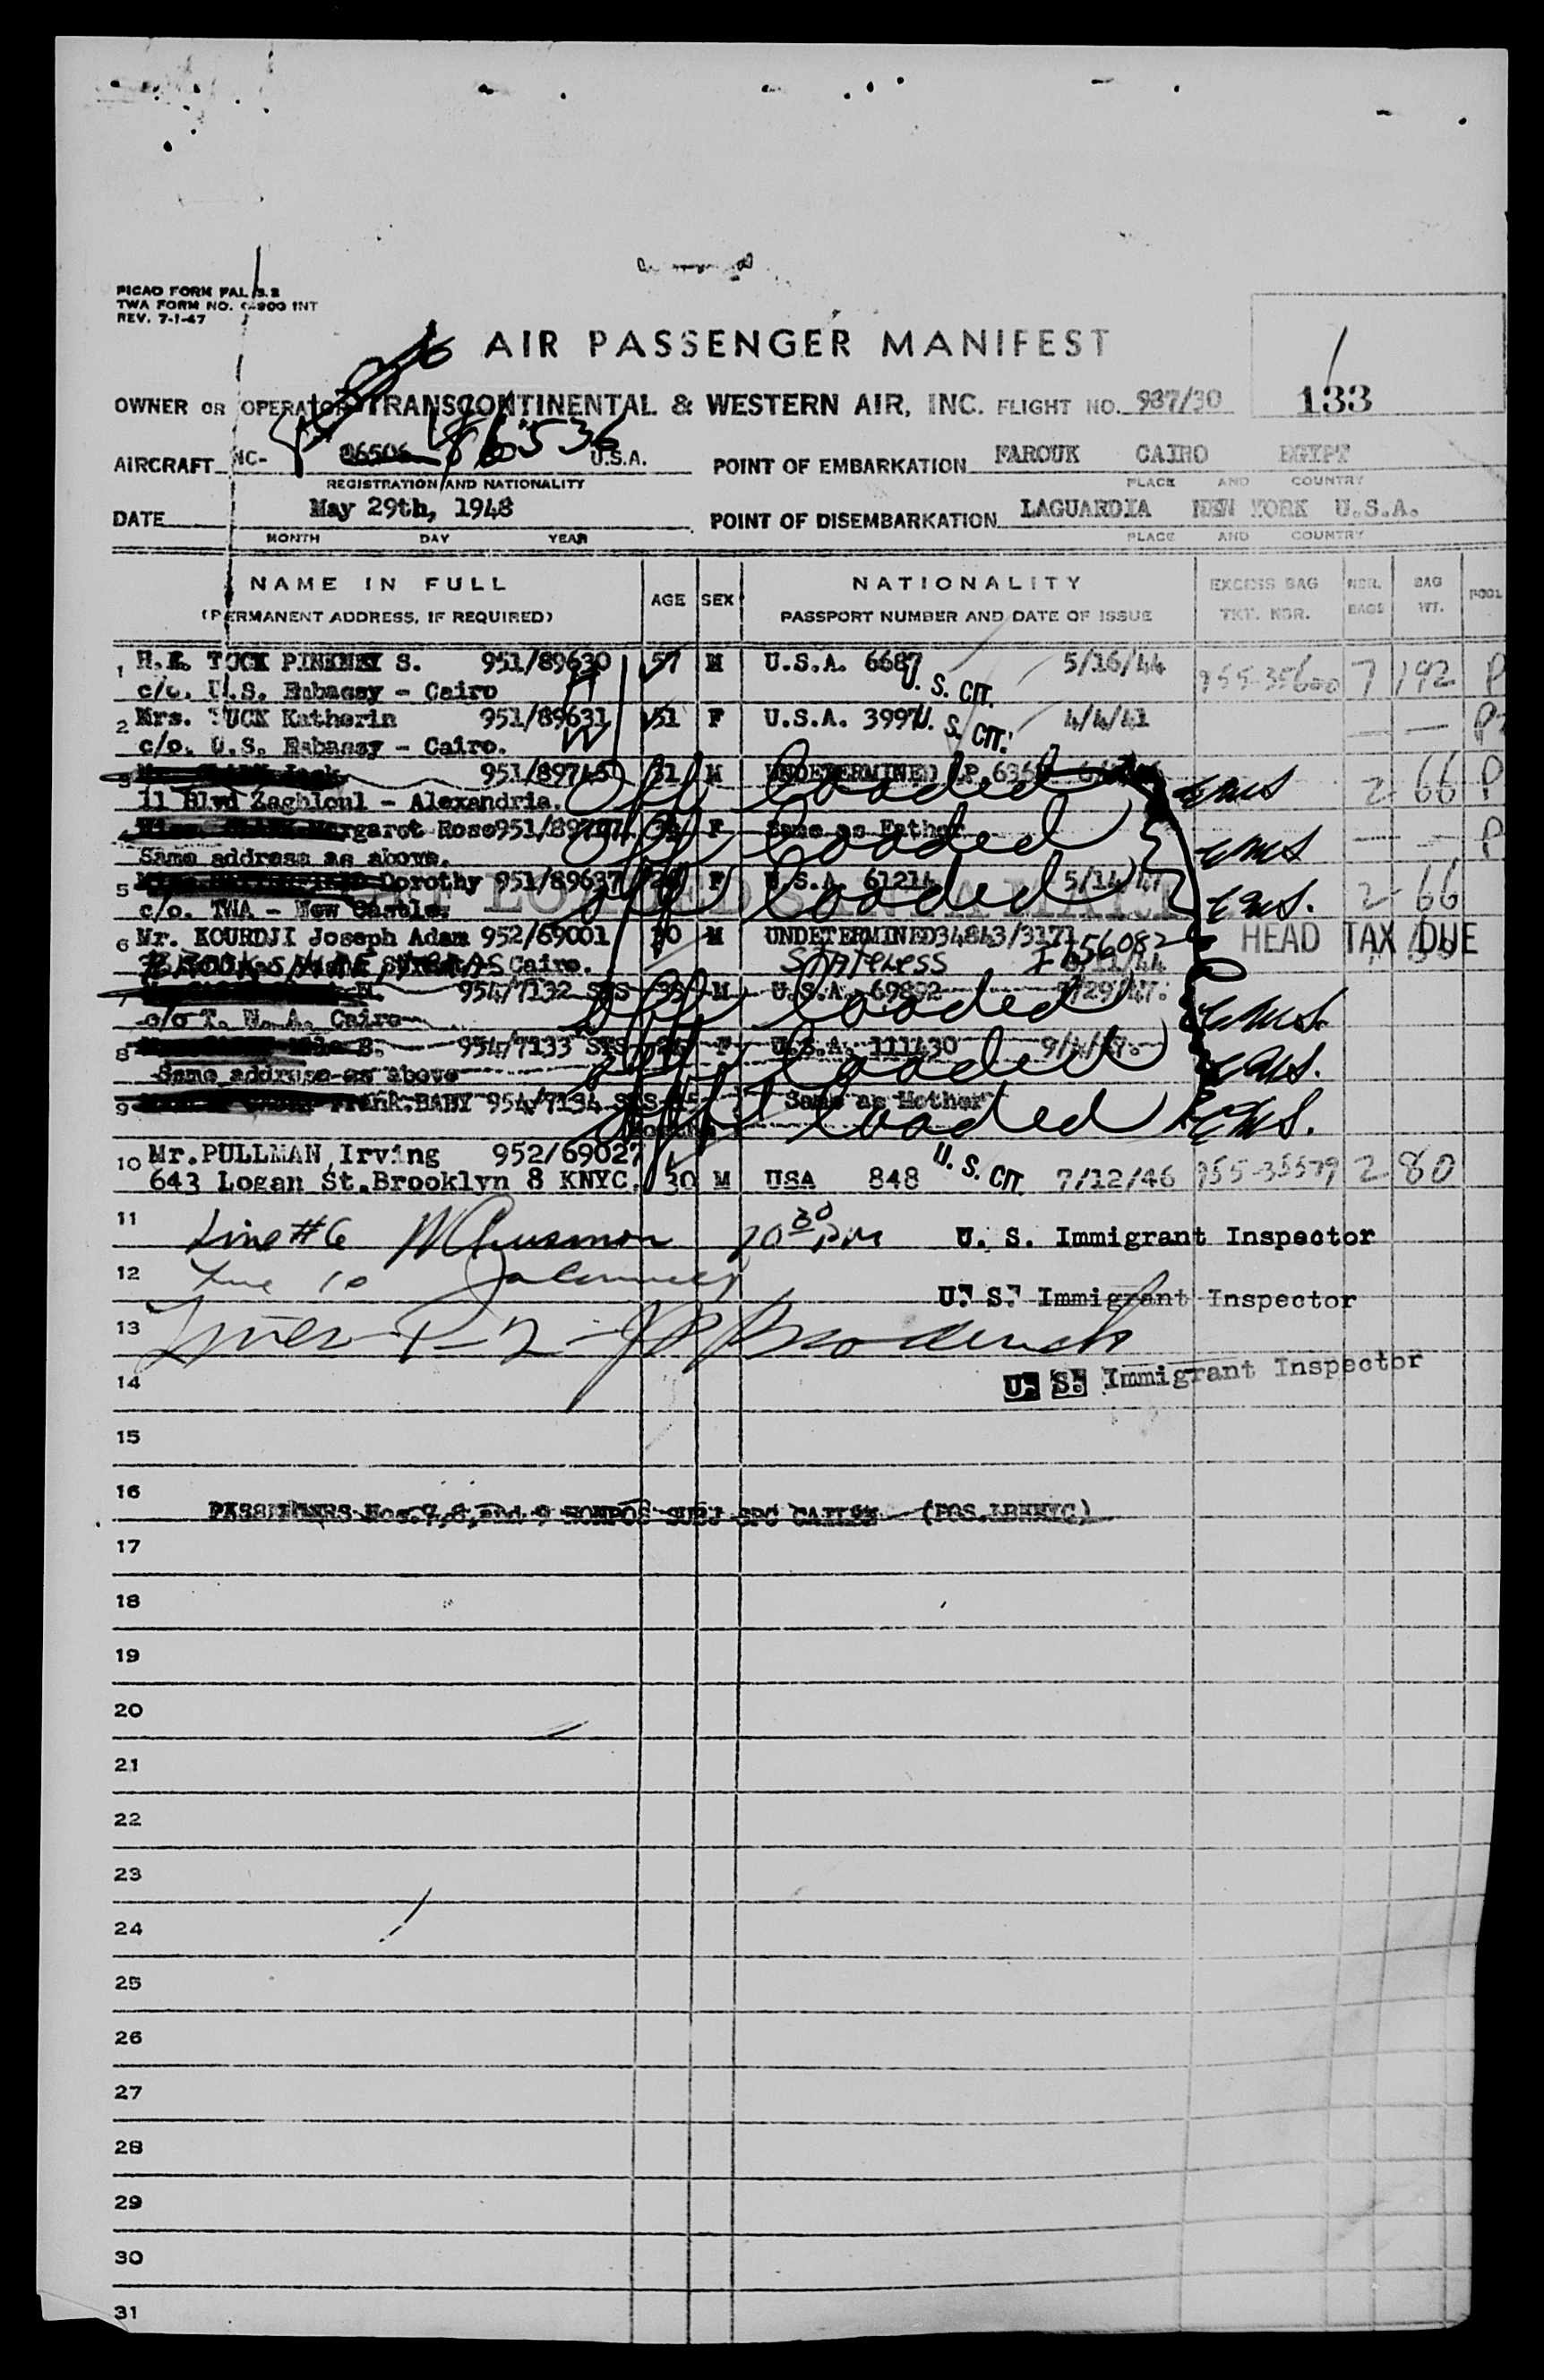 PICAO FORM PAL /S.2
TWA FORM NO. 0-900 INT
REV. 7-1-47
AIR PASSENGER MANIFEST
OWNER OR OPERATOR TRANSCONTINENTAL & WESTERN AIR, INC. FLIGHT NO. 937/30
1
133
AIRCRAFT NC- 86506 86536 U.S.A. POINT OF EMBARKATION FAROUK CAIRO EGYPT
REGISTRATION AND NATIONALITY PLACE AND COUNTRY
DATE May 29th, 1948 POINT OF DISEMBARKATION LAGUARDIA NEW YORK U.S.A.
MONTH DAY YEAR PLACE AND COUNTRY
NAME IN FULL AGE SEX NATIONALITY EXCESS BAG NBR. BAG POOL
(PERMANENT ADDRESS, IF REQUIRED) PASSPORT NUMBER AND DATE OF ISSUE TKT. NBR. BAGS WT.
1 H.E. TUCK PINKNEY S. 951/89630 57 M U.S.A. 6687 U. S. CIT. 5/16/44 955-35600 7 192 P
c/o. U.S. Embassy - Cairo
2 Mrs. TUCK Katherin 951/89631 51 F U.S.A. 3997 U. S. CIT. 4/4/41 — — P
c/o. U.S. Embassy - Cairo.
3 Mr. Jack 951/89745 31 M UNDETERMINED off loaded EMS 2 66 P
11 Blvd Zaghloul - Alexandria.
4 Miss Margaret Rose 951/ F Same as Father off loaded EMS — — P
Same address as above.
5 Dorothy 951/89637 F U.S.A. 61214 5/14/47 off loaded EMS. 2 66
c/o. TWA - New Castle.
6 Mr. KOURDJI Joseph Adam 952/69001 M UNDETERMINED 34843/3171 HEAD TAX DUE
Cairo. STATELESS I 456082
7 M. 954/7132 STS M U.S.A. 69892 /29/47. off loaded EMS.
c/o T. W. A. Cairo
8 B. 954/7133 STS F U.S.A. 111430 9/4/47. off loaded EMS.
Same address as above
9 BABY 954/7134 STS Same as Mother off loaded EMS.
10 Mr. PULLMAN Irving 952/69027
643 Logan St. Brooklyn 8 KNYC. 30 M USA 848 U. S. CIT. 7/12/46 955-35579 2 80
11 Line #6 10 30 PM U. S. Immigrant Inspector
12 Line 10
U. S. Immigrant Inspector
13 Lines 1-2
14 U. S. Immigrant Inspector
15
16
PASSENGERS Nos. 7, 8, and 9 NONPOS SUBJ SPC
17
18
19
20
21
22
23
24
25
26
27
28
29
30
31